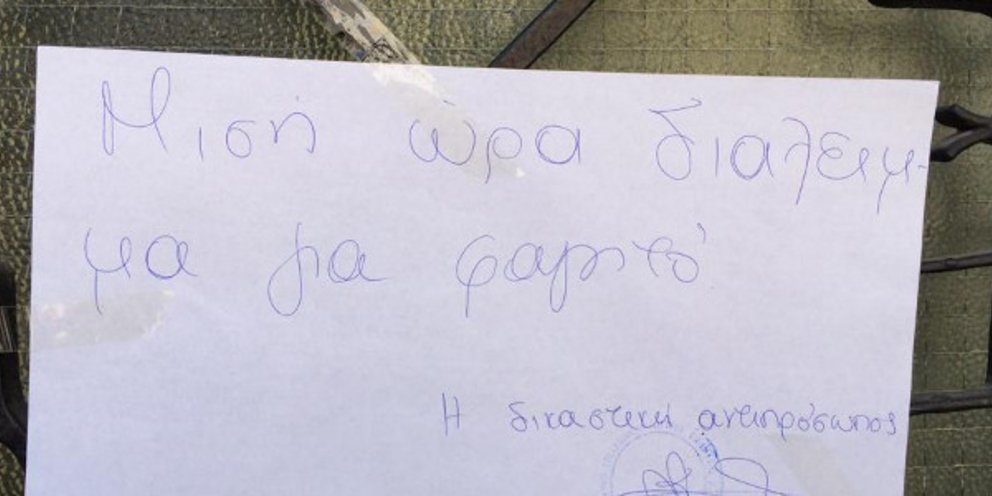 Μισή ώρα διαλειμ-
μα για φαγητό
Η δικαστική αντιπρόσωπος